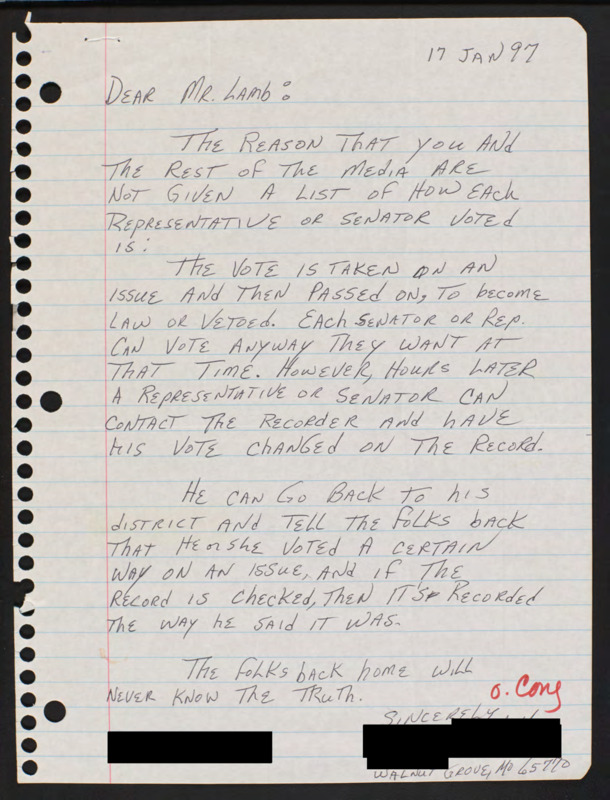 17 JAN 97
DEAR MR. LAMB:
THE REASON THAT YOU AND
THE REST OF THE MEDIA ARE
NOT GIVEN A LIST OF HOW EACH
REPRESENTATIVE OR SENATOR VOTED
IS:
THE VOTE IS TAKEN ON AN
ISSUE AND THEN PASSED ON, TO BECOME
LAW OR VETOED. EACH SENATOR OR REP.
CAN VOTE ANYWAY THEY WANT AT
THAT TIME. HOWEVER, HOURS LATER
A REPRESENTATIVE OR SENATOR CAN
CONTACT THE RECORDER AND HAVE
HIS VOTE CHANGED ON THE RECORD.
HE CAN GO BACK TO HIS
DISTRICT AND TELL THE FOLKS BACK
THAT HE OR SHE VOTED A CERTAIN
WAY ON AN ISSUE, AND IF THE
RECORD IS CHECKED, THEN IT'S RECORDED
THE WAY HE SAID IT WAS.
THE FOLKS BACK HOME WILL
NEVER KNOW THE TRUTH.
O. Cong
SINCERELY
WALNUT GROVE, MO 65770